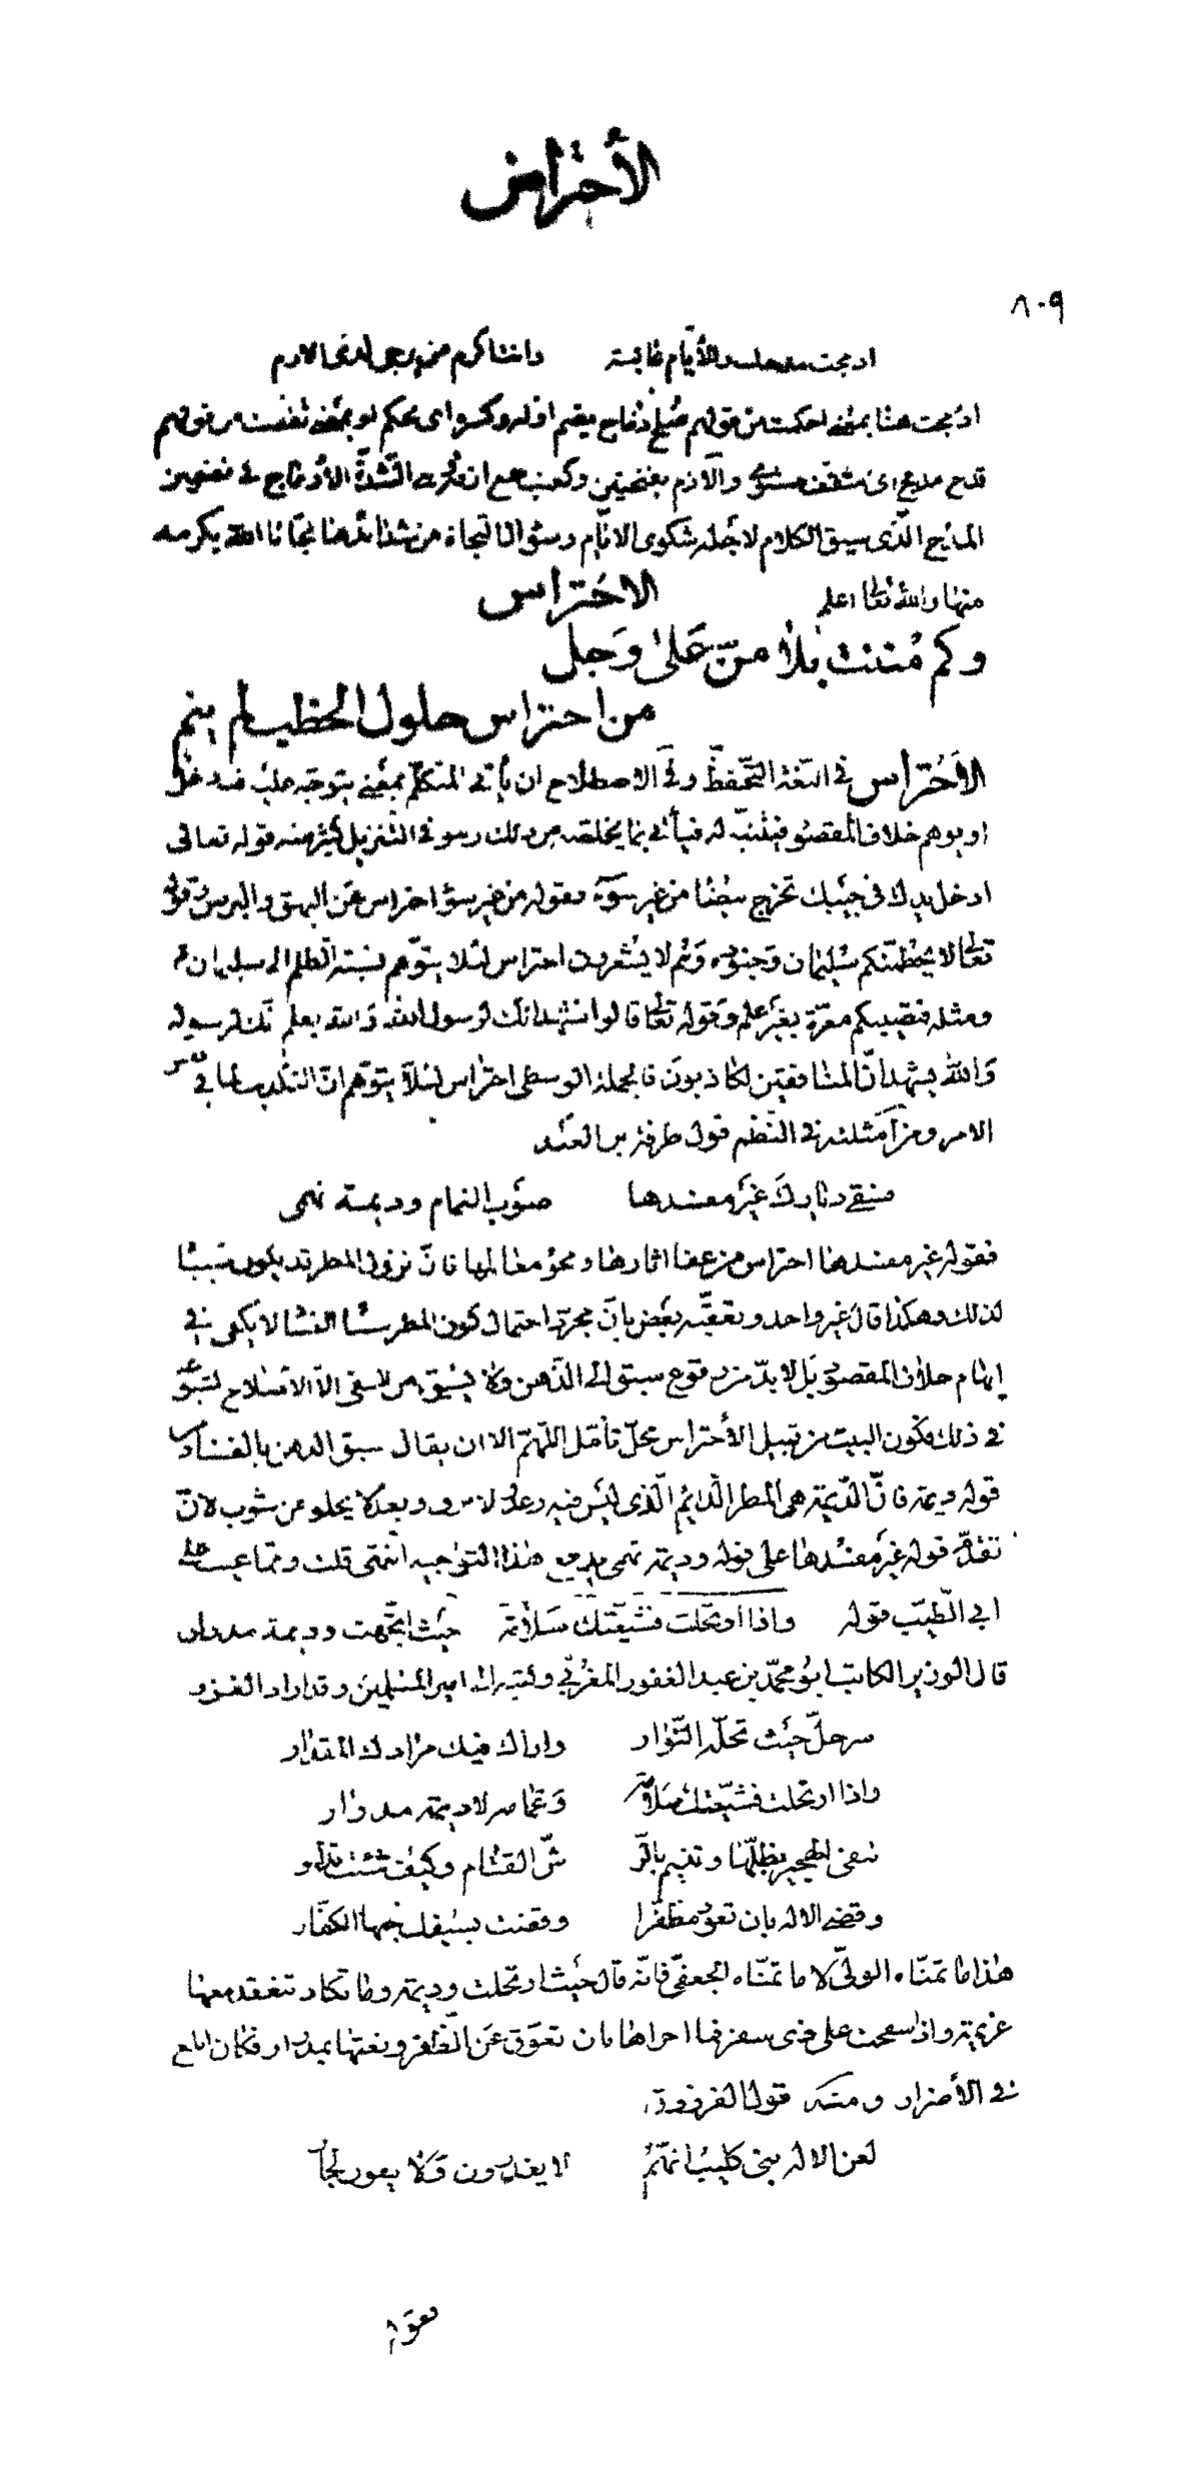 الأحتراس
٨٠٩
ادمجت والأيام غالبة
ادمجت هنا بمعنى احكمت من قولهم صلح دماج بضم اوله وكسره اى محكم او بمعنى من قولهم
قدح مدمج اى والازم بفتحتين وكعنب جمع ازمة وهى الشدة الأدماج فى تضمين
المديح الّذى سيق الكلام لاجله شكوى الايام وسؤال النجاة من شدائدها نجّانا الله بكرمه
منها والله تعالى اعلم الاحتراس
وكم مننت بلا منّ على وجل
من احتراس حلول الخطب لم ينم
الاحتراس فى اللغة التحفّظ وفى الاصطلاح ان يأتى المتكلّم بمعنى يتوجّه عليه فيه دخل
او يوهم خلاف المقصود فيتنبّه له فيأتى بما يخلصه من ذلك وهو فى التنزيل كثير منه قوله تعالى
ادخل يدك فى جيبك تخرج بيضاء من غير سوء فقوله من غير سوء احتراس عن البهق والبرص وقوله
تعالى لا يحطمنّكم سليمان وجنوده وهم لا يشعرون احتراس لئلا يتوهّم نسبة الظلم الى سليمان
ومثله فتصيبكم معرّة بغير علم وقوله تعالى قالوا نشهد انك لرسول الله والله يعلم انك لرسوله
والله يشهد انّ المنافقين لكاذبون فالجملة الوسطى احتراس لئلا يتوهم انّ التكذيب لما فى نفس
الامر ومن امثلته فى النظم قول طرفة بن العبد
فسقى ديارك غير مفسدها صوب الغمام وديمة تهمى
فقوله غير مفسدها احتراس من عفا اثارها ومحو معالمها فانّ نزول المطر قد يكون سببًا
لذلك وهكذا قال غير واحد وتعقّبه بعض بانّ مجرّد احتمال كون المطر سببًا لا يكفى فى
ايهام خلاف المقصود بل لا بدّ من وقوع سبق الى الذّهن ولا يسبق من لاسقى الاّ الاصلاح
فى ذلك فكون البيت من قبيل الأحتراس محلّ تأمّل اللهمّ الا ان يقال سبق الذهن بالفساد
قوله ديمة فانّ الدّيمة هى المطر الدّايم الّذى ليس فيه رعد ولا برق وبعد لا يخلو عن شوب لانّ
تقدّم قوله غير مفسدها على قوله وديمة تهمى هذا التوجيه انتهى قلت وممّا عيب على
ابى الطّيّب قوله واذا ارتحلت فشيّعتك سلامة حيث اتّجهت وديمة مدرار
قال الوزير الكاتب ابو محمّد بن عبد الغفور المغربى وامير المسلمين وقد اراد الغزو
سر حلّ حيث تحلّه النّوّار واراك فيك مرادك المقدار
واذا ارتحلت فشيّعتك سلامة وغمامة لا ديمة مدرار
تنفى الهجير بظلّها وتنيم بالرّ شّ القتام وكيف شئت تدار
وقضى الاله بان تعود مظفّرا وقضت بسيفك نحبها الكفّار
هذا ما تمنّاه الولىّ لا ما تمنّاه الجعفىّ فانّه قال حيث ارتحلت وديمة وما تكاد تنفد معها
عزيمة واذا سفحت على ذى سفر فما احراها بان تعوق عن الظفر ونعتها بمدرار فكان ابلغ
فى الأضرار ومنه قول الفرزدق
لعن الاله بنى كليب انّهم لا يغدرون ولا يفون لجار